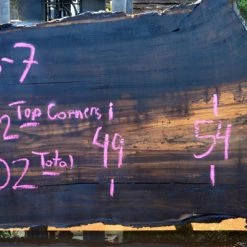 5-7
2 Top Corners i
49
54
02 Total